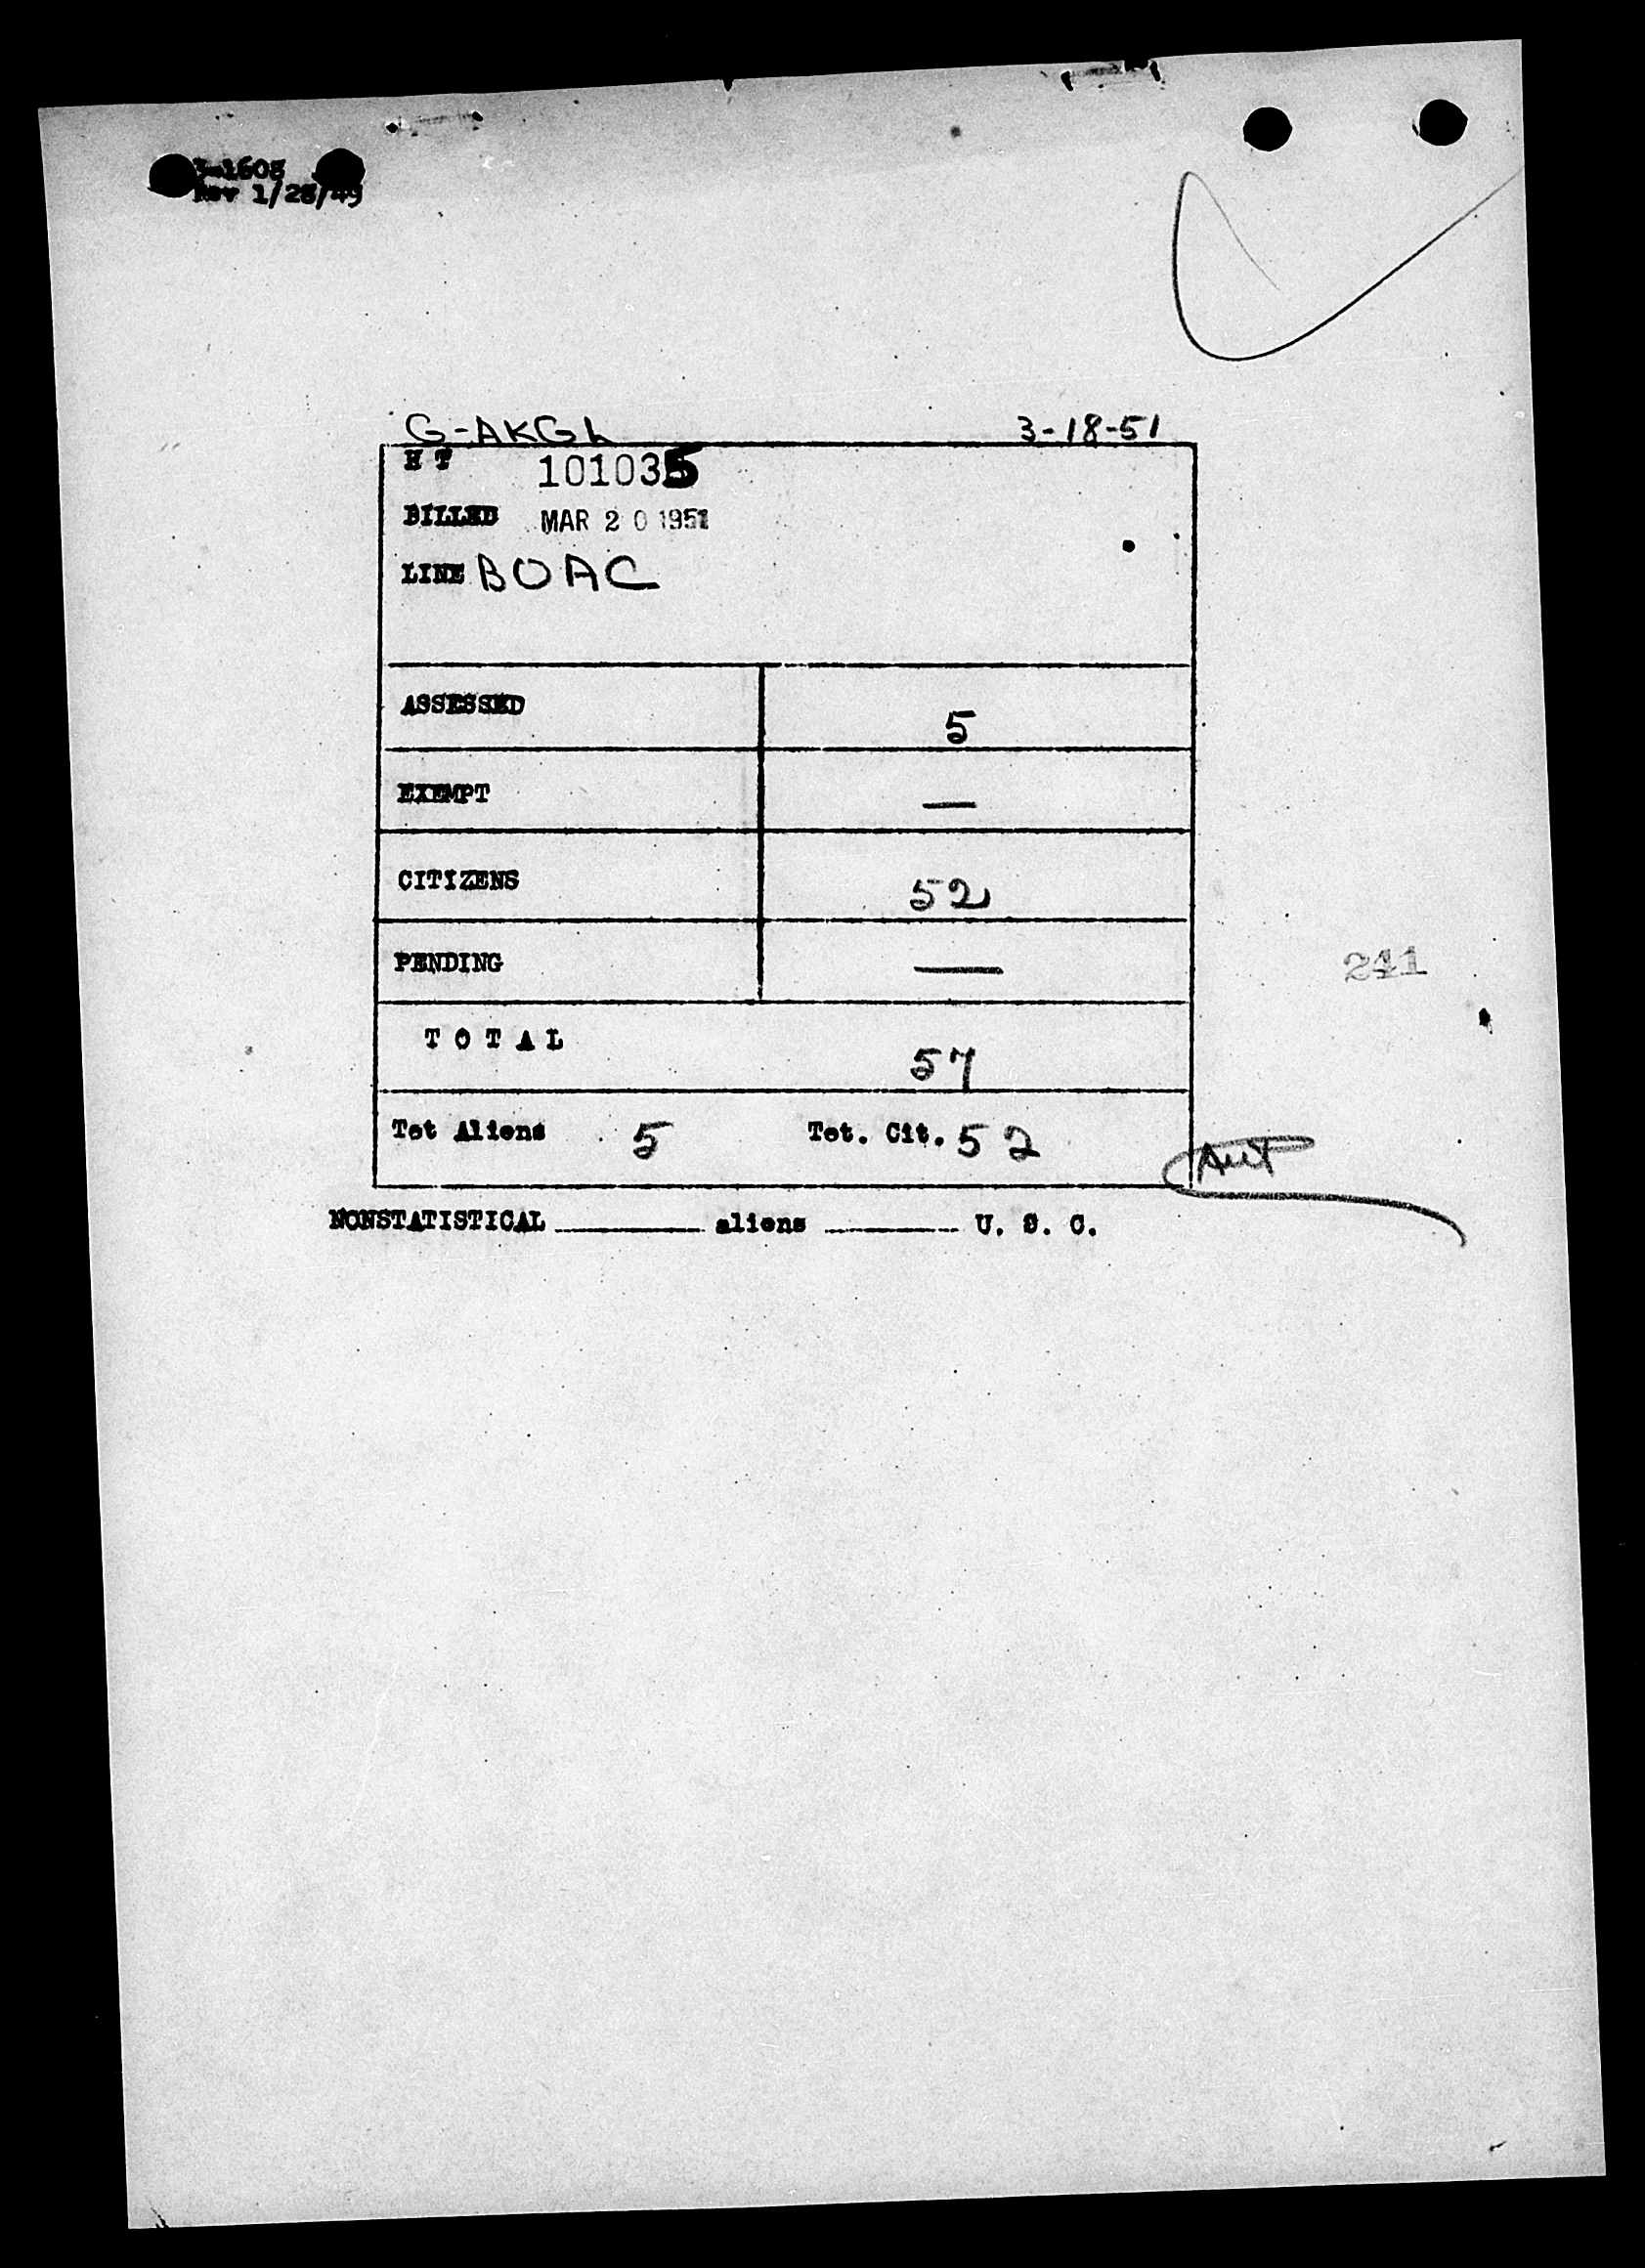 3-1608
Rev 1/28/49
G-AKGL 3-18-51
H T 101035
BILLED MAR 20 1951
LINE BOAC
ASSESSED 5
EXEMPT —
CITIZENS 52
PENDING —
241
T O T A L 57
Tot Aliens 5 Tot. Cit. 52
NONSTATISTICAL ________ aliens ________ U. S. C.